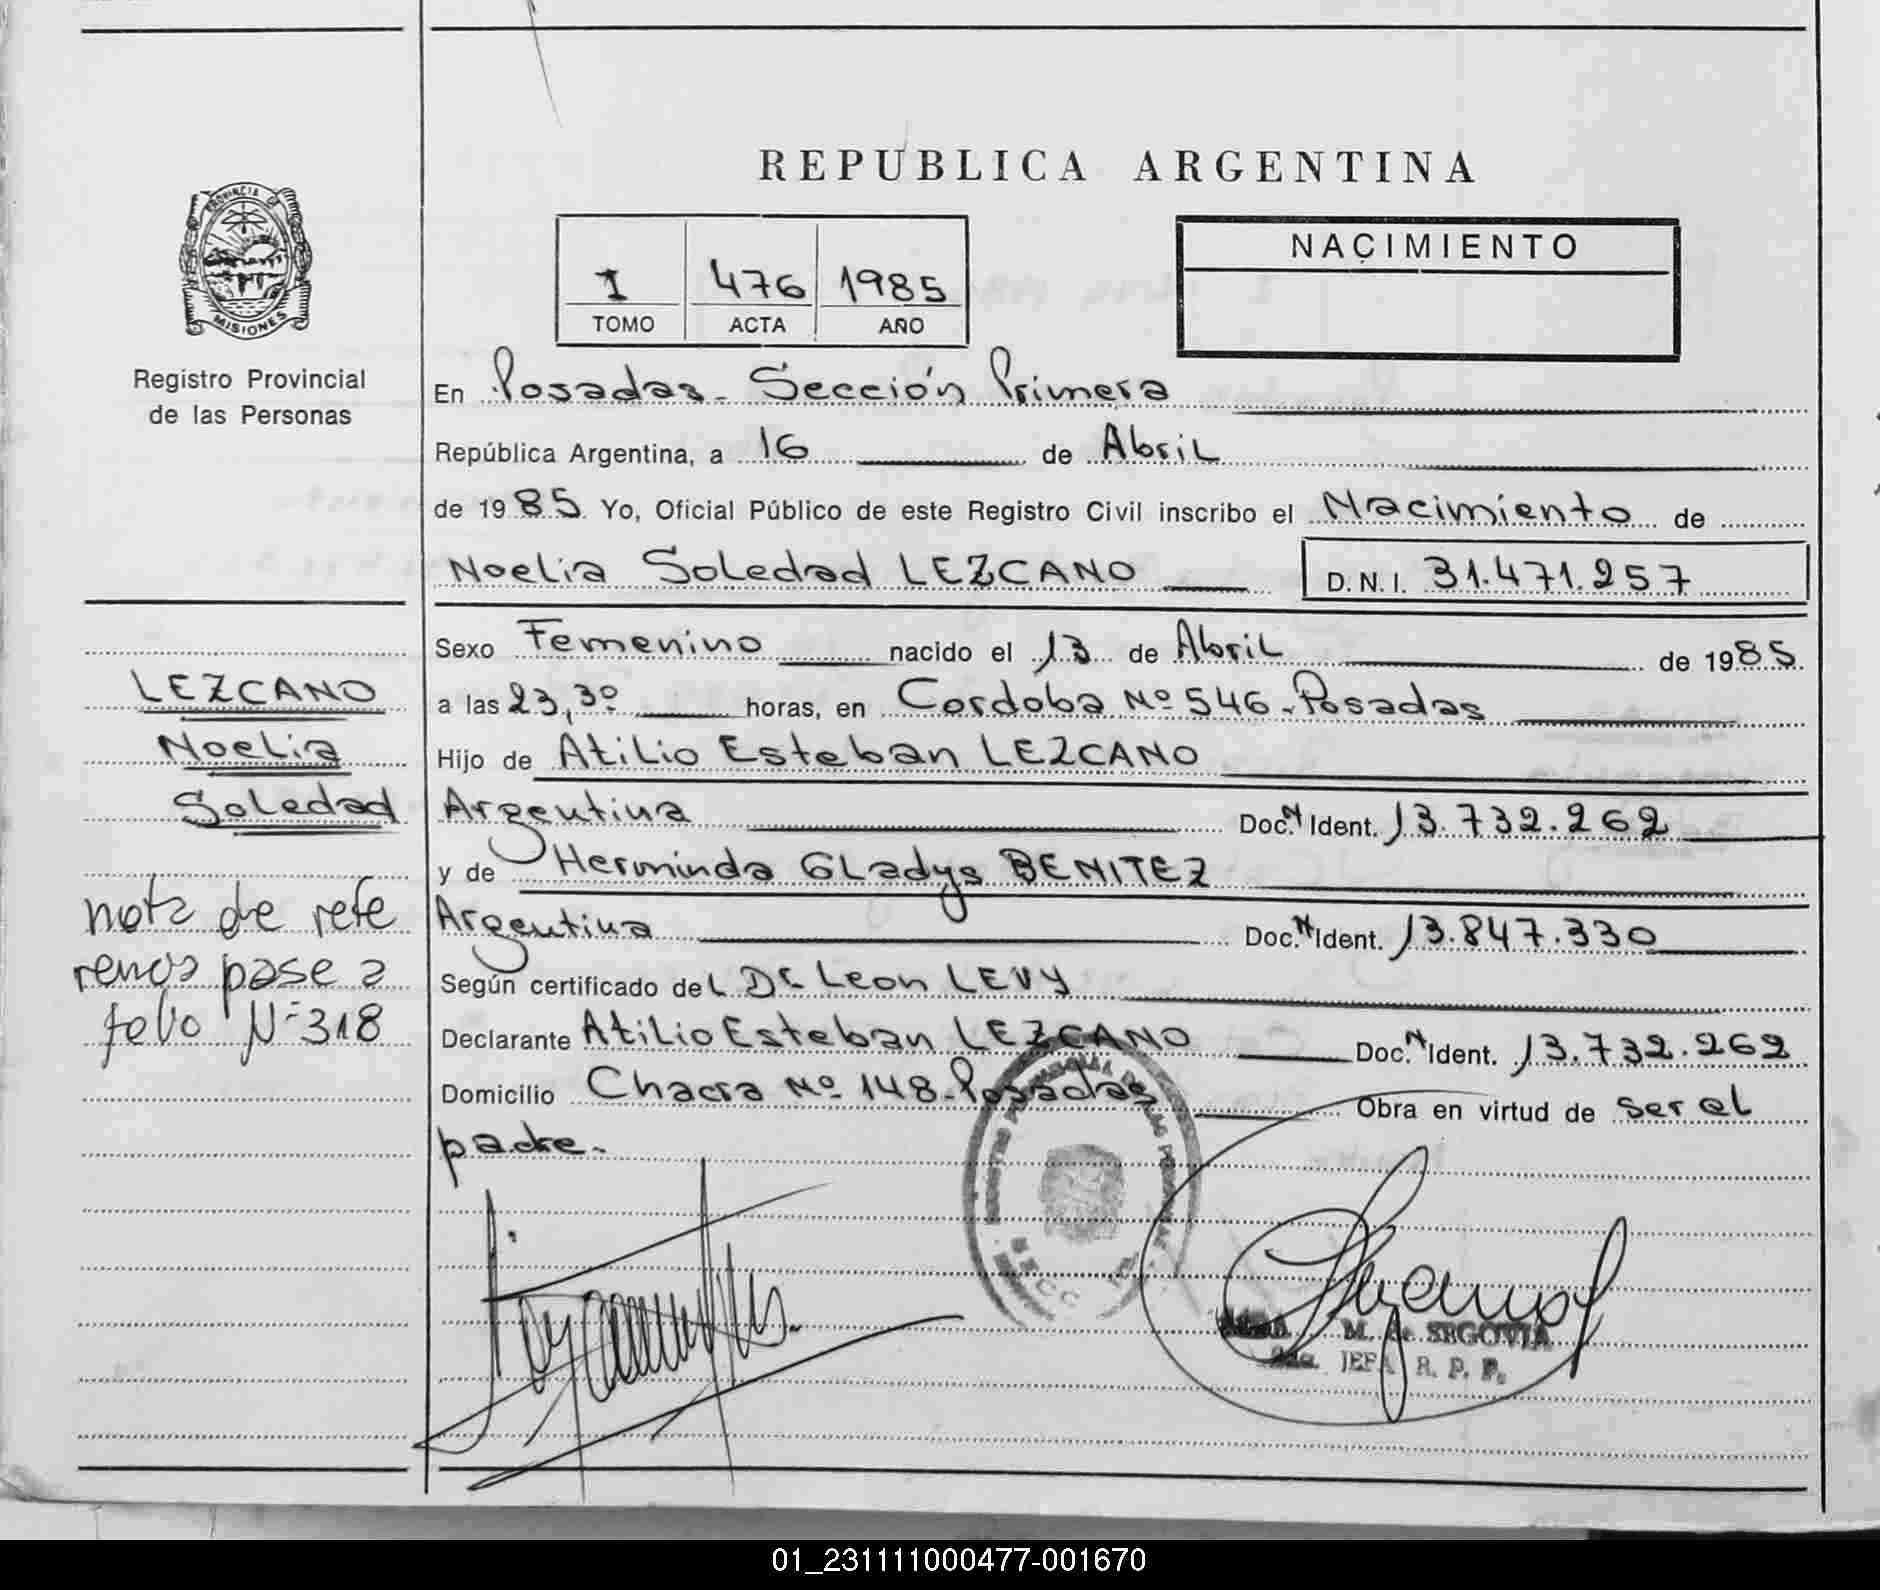 REPUBLICA ARGENTINA
PROVINCIA DE
MISIONES
Registro Provincial
de las Personas
1 476 1985
TOMO ACTA AÑO
NACIMIENTO
En Posadas - Sección Primera
República Argentina, a 16 de Abril
de 1985. Yo, Oficial Público de este Registro Civil inscribo el Nacimiento de
Noelia Soledad LEZCANO D.N.I. 31.471.257
Sexo Femenino nacido el 13 de Abril de 1985.
a las 23,30 horas, en Cordoba Nº 546 - Posadas
Hijo de Atilio Esteban LEZCANO
Argentina Doc. N Ident. 13.732.262
y de Herminda Gladys BENITEZ
Argentina Doc. N Ident. 13.847.330
Según certificado del Dr Leon LEVY
Declarante Atilio Esteban LEZCANO Doc. N Ident. 13.732.262
Domicilio Chacra Nº 148 - Posadas Obra en virtud de ser el
padre.
LEZCANO
Noelia
Soledad
nota de refe
rencia pase a
folio Nº 318
M. de SEGOVIA
JEFA R. P. P.
01_231111000477-001670